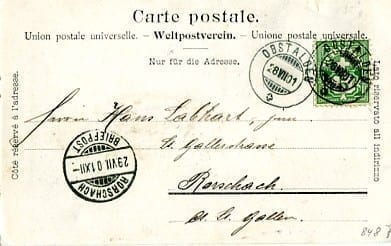 Carte postale.
Union postale universelle. – Weltpostverein. – Unione postale universale.
Nur für die Adresse.
Côté réservé à l'adresse.
Lato riservato all' indirizzo
OBSTALDEN
28 VII 01
OBSTALDEN
Herrn Hans Labhart, jun.
St. Gallerstrasse
Rorschach.
Ct. St. Gallen.
RORSCHACH
29 VII. 01. XII –
BRIEFPOST
848